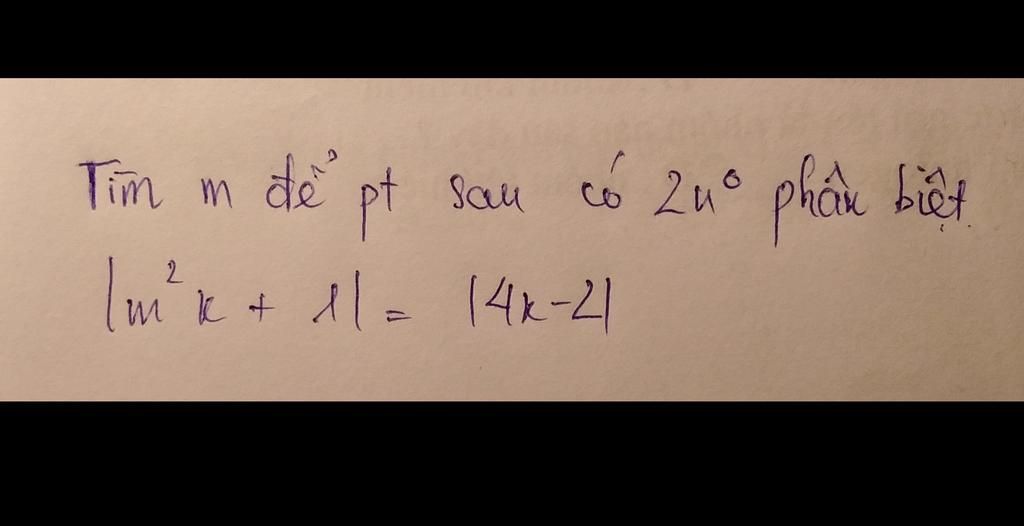 Tìm m để pt sau có 2n° phân biệt.
|m²x + 1| = |4x-2|